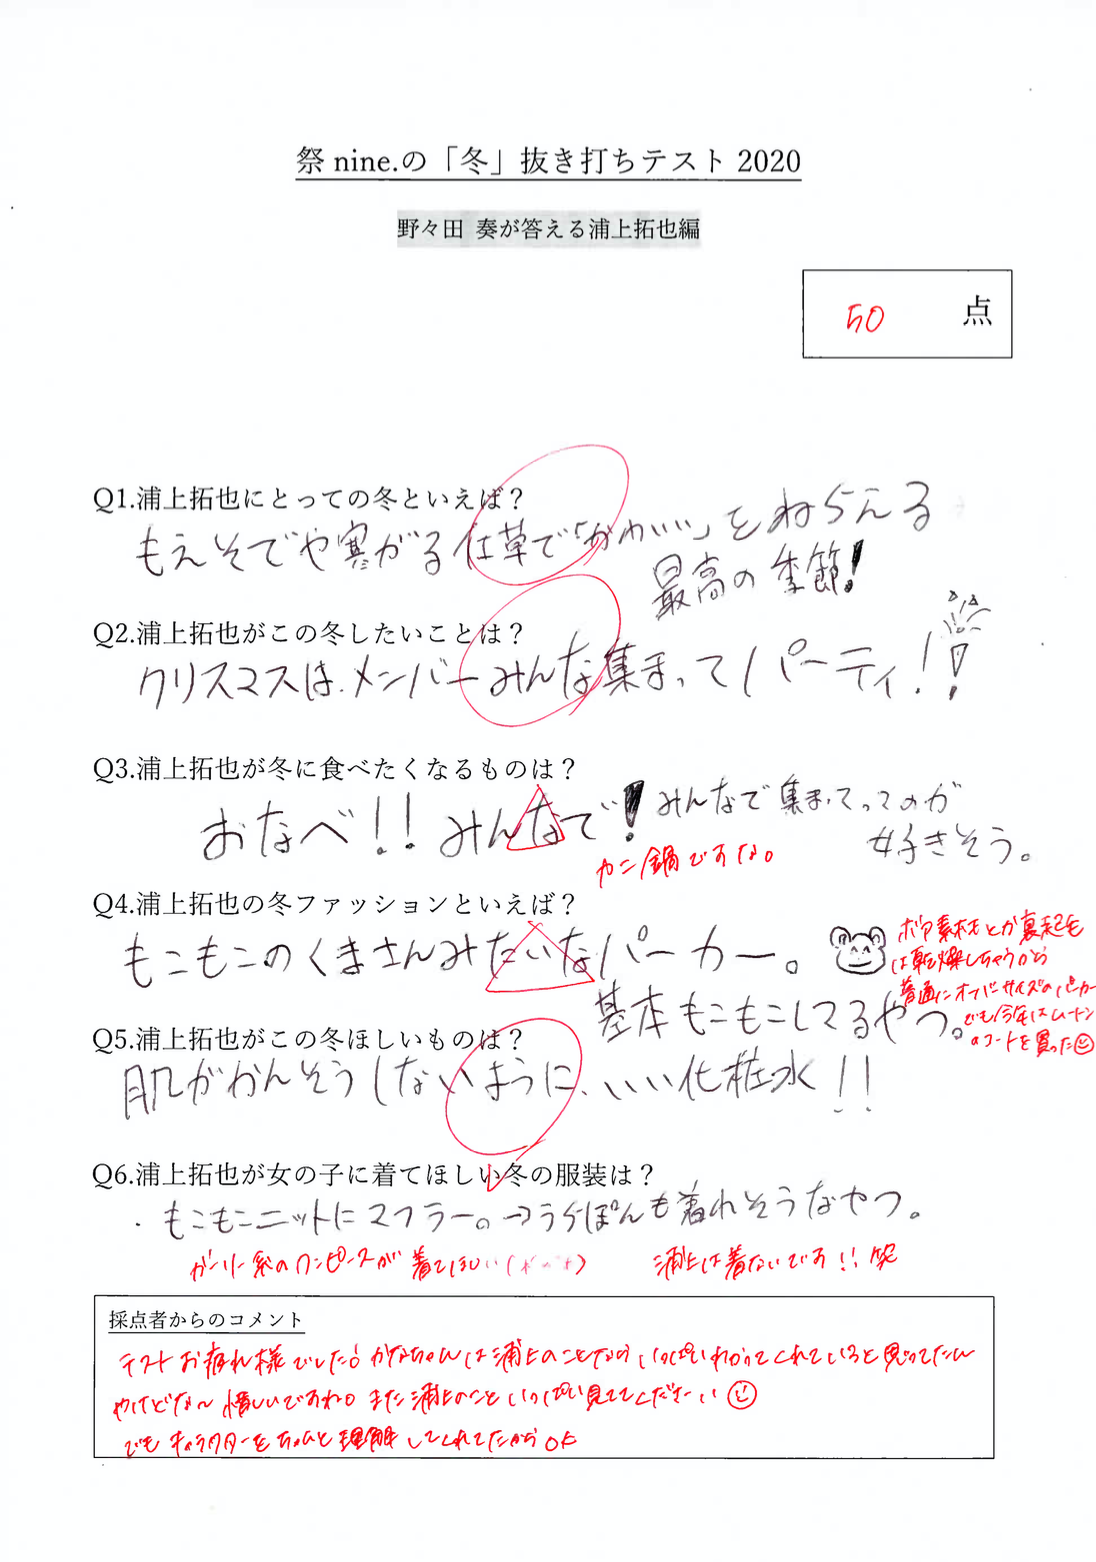 祭 nine.の「冬」抜き打ちテスト 2020
野々田 奏が答える浦上拓也編
50 点
Q1.浦上拓也にとっての冬といえば？
もえそでや寒がる仕草で「かわいい」をねらえる
最高の季節!
Q2.浦上拓也がこの冬したいことは？
クリスマスは、メンバーみんな集まってパーティ!!
Q3.浦上拓也が冬に食べたくなるものは？
おなべ!! みんなで! みんなで集まってってのが
好きそう。
カニ鍋ですな。
Q4.浦上拓也の冬ファッションといえば？
もこもこのくまさんみたいなパーカー。
基本もこもこしてるやつ。
ボア素材とか裏起毛
は乾燥しちゃうから
普通にオーバーサイズのパーカー
でも今年はムートン
のコートを買った
Q5.浦上拓也がこの冬ほしいものは？
肌がかんそうしないように、いい化粧水!!
Q6.浦上拓也が女の子に着てほしい冬の服装は？
・もこもこニットにマフラー。→うらぽんも着れそうなやつ。
ガーリー系のワンピースが着てほしい
浦上は着ないです!! 笑
採点者からのコメント
テストお疲れ様でした! かなちゃんは浦上のことならいっぱいわかってくれていると思ってたん
やけどな〜 惜しいですね。また浦上のこといっぱい見ててください
でもキャラクターをちゃんと理解してくれてたからOK